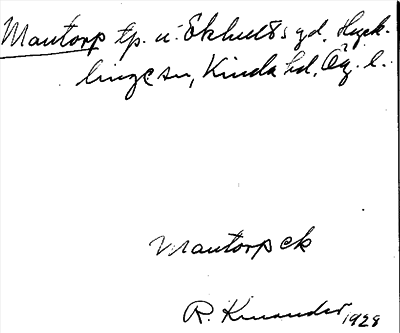 Mantorp tp. u. Ekhults gd. Hyck-
linge sn, Kinda hd, Ög. l.
Mantorp ek
R. Kinander 1929